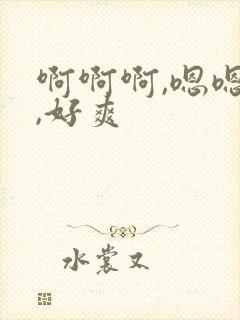 啊啊啊,嗯嗯
,好爽
水裳又